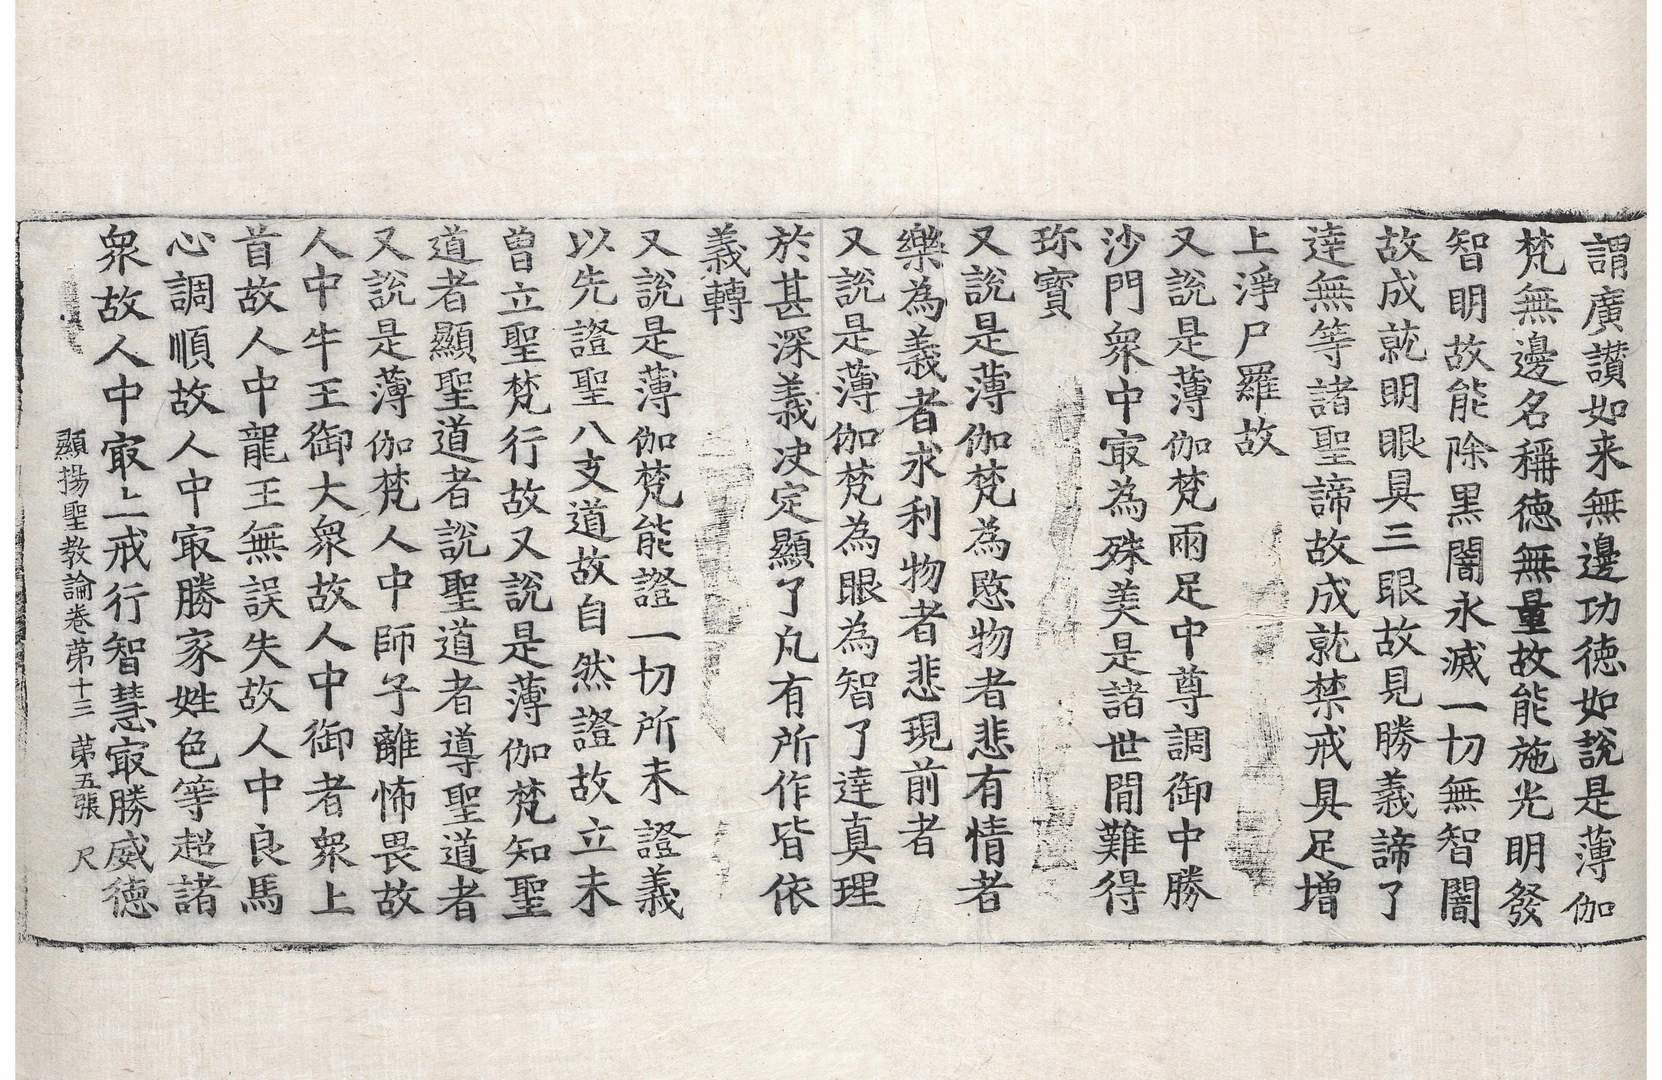 謂廣讃如来無邊功徳如說是薄伽
梵無邊名稱徳無量故能施光明發
智明故能除黒闇永滅一切無智闇
故成就明眼具三眼故見勝義諦了
達無等諸聖諦故成就禁戒具足增
上淨尸羅故
又說是薄伽梵兩足中尊調御中勝
沙門衆中㝡為殊美是諸世間難得
珎寶
又說是薄伽梵為愍物者悲有情者
樂為義者求利物者悲現前者
又說是薄伽梵為眼為智了達真理
於甚深義决定顯了凢有所作皆依
義轉
又說是薄伽梵能證一切所未證義
以先證聖八支道故自然證故立未
曽立聖梵行故又說是薄伽梵知聖
道者顯聖道者說聖道者導聖道者
又說是薄伽梵人中師子離怖畏故
人中牛王御大衆故人中御者衆上
首故人中龍王無誤失故人中良馬
心調順故人中㝡勝家姓色等超諸
衆故人中㝡上戒行智慧㝡勝威徳
顯揚聖教論卷第十三 第五張 尺